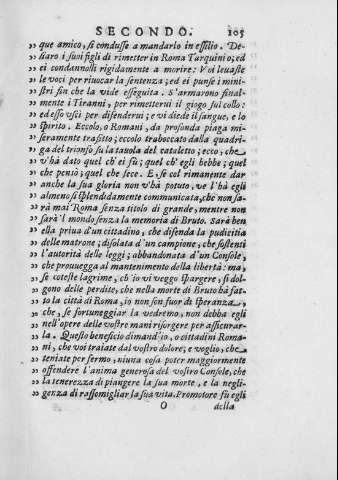 SECONDO. 105
” que amico, si condusse a mandarlo in essilio. De-
” siaro i suoi figli di rimetter in Roma Tarquinio; ed
” ei condannolli rigidamente a morire: Voi levaste
” le voci per riuocar la sentenza; ed ei punse i mini-
” stri fin che la vide esseguita. S'armarono final-
” mente i Tiranni, per rimetterui il giogo sul collo:
” ed esso vscì per difenderui; e vi diede il sangue, e lo
” spirito. Eccolo, o Romani, da profonda piaga mi-
” seramente trafitto; eccolo traboccato dalla quadri-
” ga del trionfo su la tauola del cataletto; ecco, che
” v'hà dato quel ch'ei fù; quel ch'egli hebbe; quel
” che pensò; que che fece. E, se col rimanente dar
” anche la sua gloria non v'hà potuto, ve l'hà egli
” almeno sì splendidamente communicata, che non sa-
” rà mai Roma senza titolo di grande, mentre non
” sarà 'l mondo senza la memoria di Bruto. Sarà ben
” ella priua d'un cittadino, che difenda la pudicitia
” delle matrone; disolata d'un campione, che sostenti
” l'autorità delle leggi; abbandonata d'un Console,
” che prouuegga al mantenimento della libertà: ma,
” se coteste lagrime, ch'io vi veggo spargere, si dol-
” gono delle perdite, che nella morte di Bruto hà fat-
” to la città di Roma, io non son fuor di speranza,
” che, se fortuneggiar la vedremo, non debba egli
” nell'opere delle vostre mani risorger per assicurar-
” la. Questo beneficio dimand'io, o cittadini Roma-
” ni, che voi traiate dal vostro dolore; e voglio, che
” teniate per fermo, niuna cosa poter maggiormente
” offendere l'anima generosa del vostro Console, che
” la tenerezza di piangere la sua morte, e la negli-
” genza di rassomigliar la sua vita. Promotore fù egli
O della